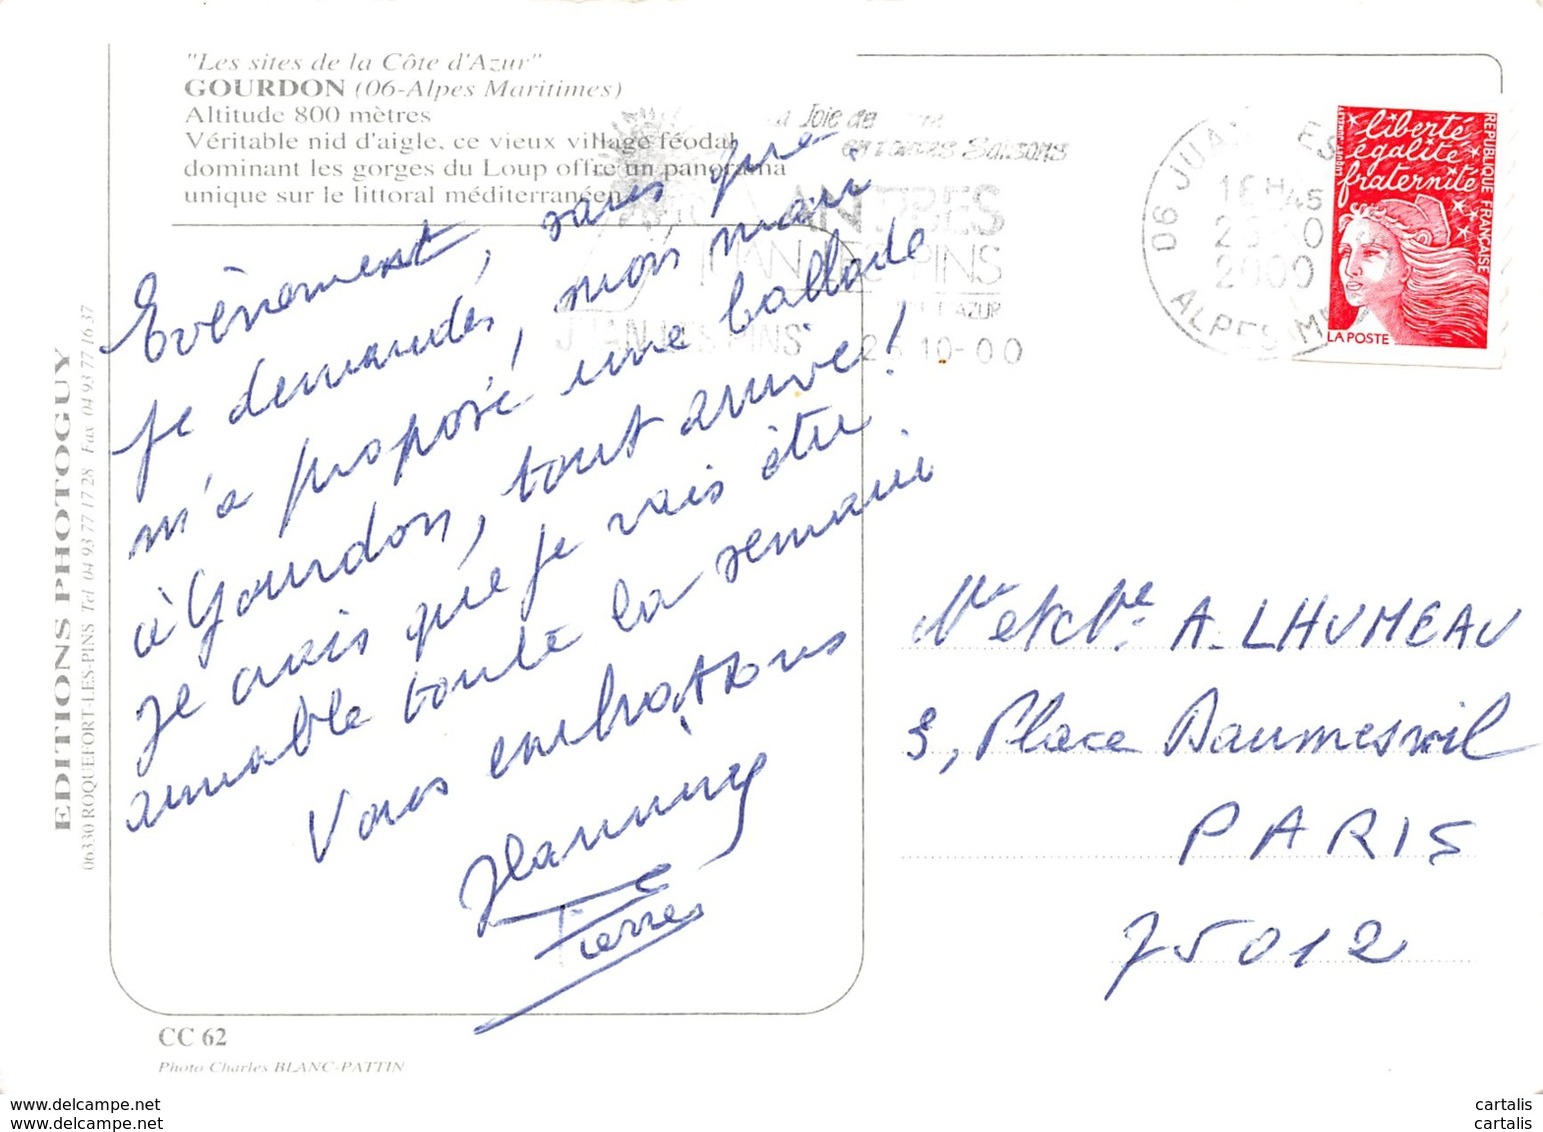 "Les sites de la Côte d'Azur"
GOURDON (06-Alpes Maritimes)
Altitude 800 mètres
Véritable nid d'aigle, ce vieux village féodal
dominant les gorges du Loup offre un panorama
unique sur le littoral méditerranéen
Evènement, sans que
je demandes, mon mari
m'a proposé une ballade
à Gourdon, tout arrive!
Je crois que je vais être
aimable toute la semaine
Vous embrassons
Pierre
EDITIONS PHOTOGUY
06330 ROQUEFORT-LES-PINS Tel 04 93 77 17 28 Fax 04 93 77 16 37
CC 62
Photo Charles BLANC-PATTIN
Joie de
en toutes Saisons
ANTIBES
JUAN LES PINS
D'AZUR
JUAN LES PINS 25-10-00
06 JUAN LES
16H45
2000
ALPES MMES
liberté
égalité
fraternité
REPUBLIQUE FRANÇAISE
LA POSTE
Mr et Me A. LHUMEAU
3, Place Daumesnil
PARIS
75012
www.delcampe.net
EDITIONS DE FRANCE
cartalis
cartalis